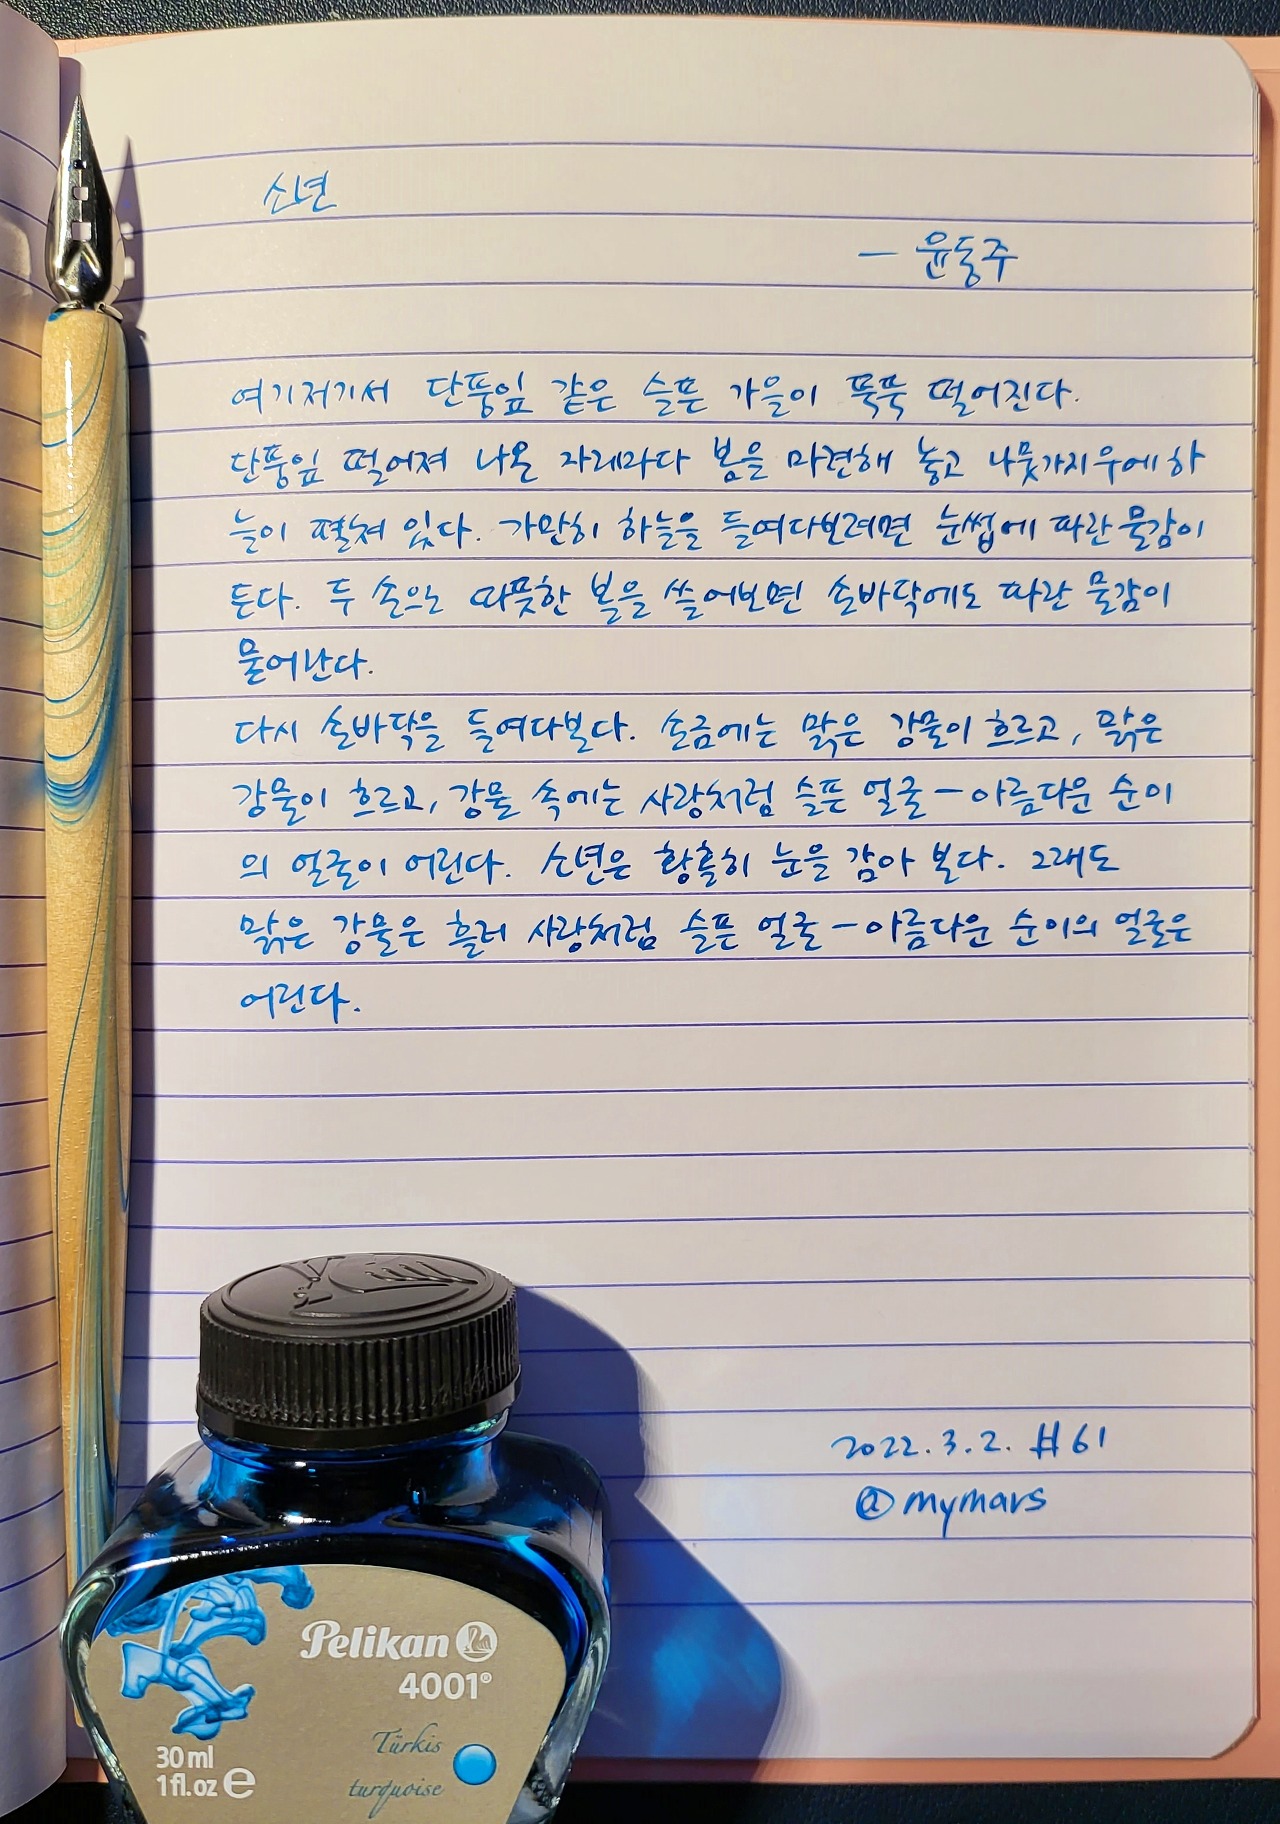 소년
— 윤동주
여기저기서 단풍잎 같은 슬픈 가을이 뚝뚝 떨어진다.
단풍잎 떨어져 나온 자리마다 봄을 마련해 놓고 나뭇가지 우에 하
늘이 펼쳐 있다. 가만히 하늘을 들여다보려면 눈썹에 파란 물감이
든다. 두 손으로 따뜻한 볼을 쓸어보면 손바닥에도 파란 물감이
묻어난다.
다시 손바닥을 들여다본다. 손금에는 맑은 강물이 흐르고, 맑은
강물이 흐르고, 강물 속에는 사랑처럼 슬픈 얼굴 — 아름다운 순이
의 얼굴이 어린다. 소년은 황홀히 눈을 감아 본다. 그래도
맑은 강물은 흘러 사랑처럼 슬픈 얼굴 — 아름다운 순이의 얼굴은
어린다.
2022.3.2. #61
@mymars
Pelikan
4001®
Türkis
turquoise
30 ml
1 fl.oz e